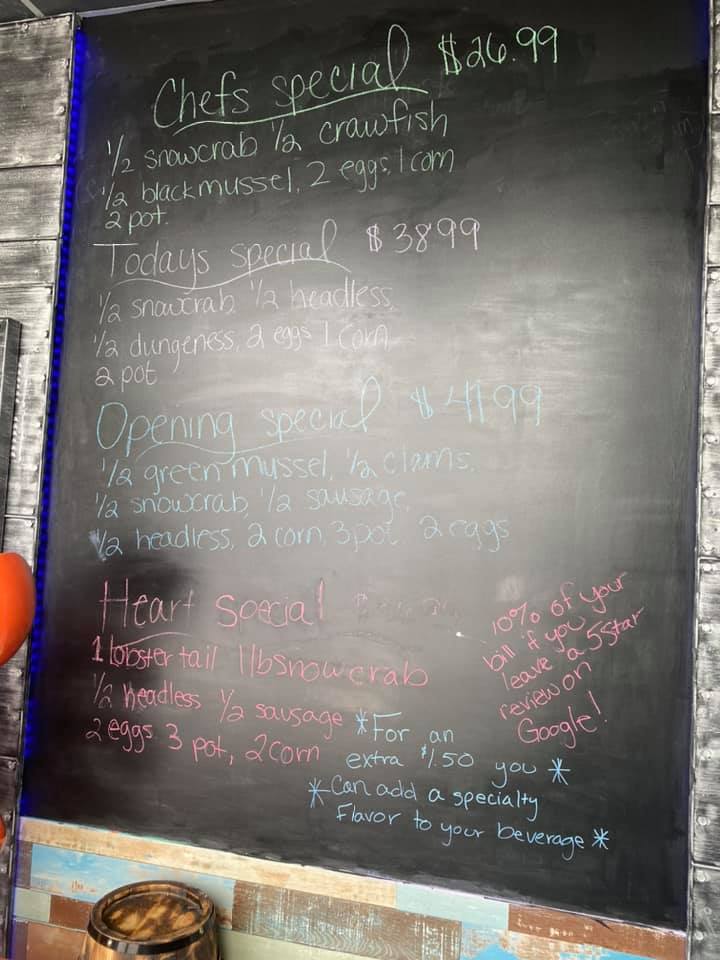 Chefs special $26.99
1/2 snowcrab 1/2 crawfish
1/2 blackmussel, 2 eggs, 1 corn
2 pot.
Todays special $38.99
1/2 snowcrab 1/2 headless,
1/2 dungeness, 2 eggs 1 corn
2 pot
Opening special $41.99
1/2 green mussel, 1/2 clams,
1/2 snowcrab, 1/2 sausage,
1/2 headless, 2 corn, 3 pot, 2 eggs
Heart special
1 lobster tail 1lb snowcrab
1/2 headless 1/2 sausage
2 eggs 3 pot, 2 corn
10% of your
bill if you
leave a 5 Star
review on
Google!
*For an
extra $1.50 you *
*Can add a specialty
Flavor to your beverage *